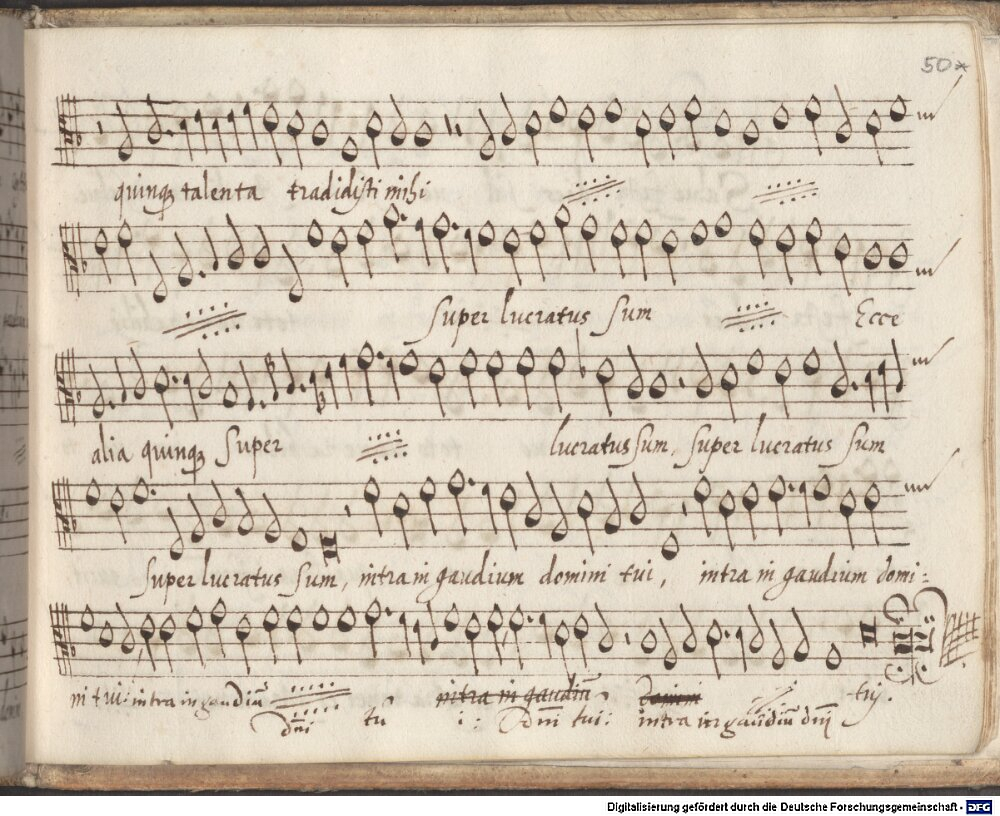 50*
quinq; talenta tradidisti mihi
super lucratus sum Ecce
alia quinq; super lucratus sum, super lucratus sum
super lucratus sum, intra in gaudium domini tui, intra in gaudium domi:
ni tui: intra in gaudiū intra in gaudiū, domini tui.
dñi tu i: dñi tui: intra in gaudiū dñi
Digitalisierung gefördert durch die Deutsche Forschungsgemeinschaft - DFG